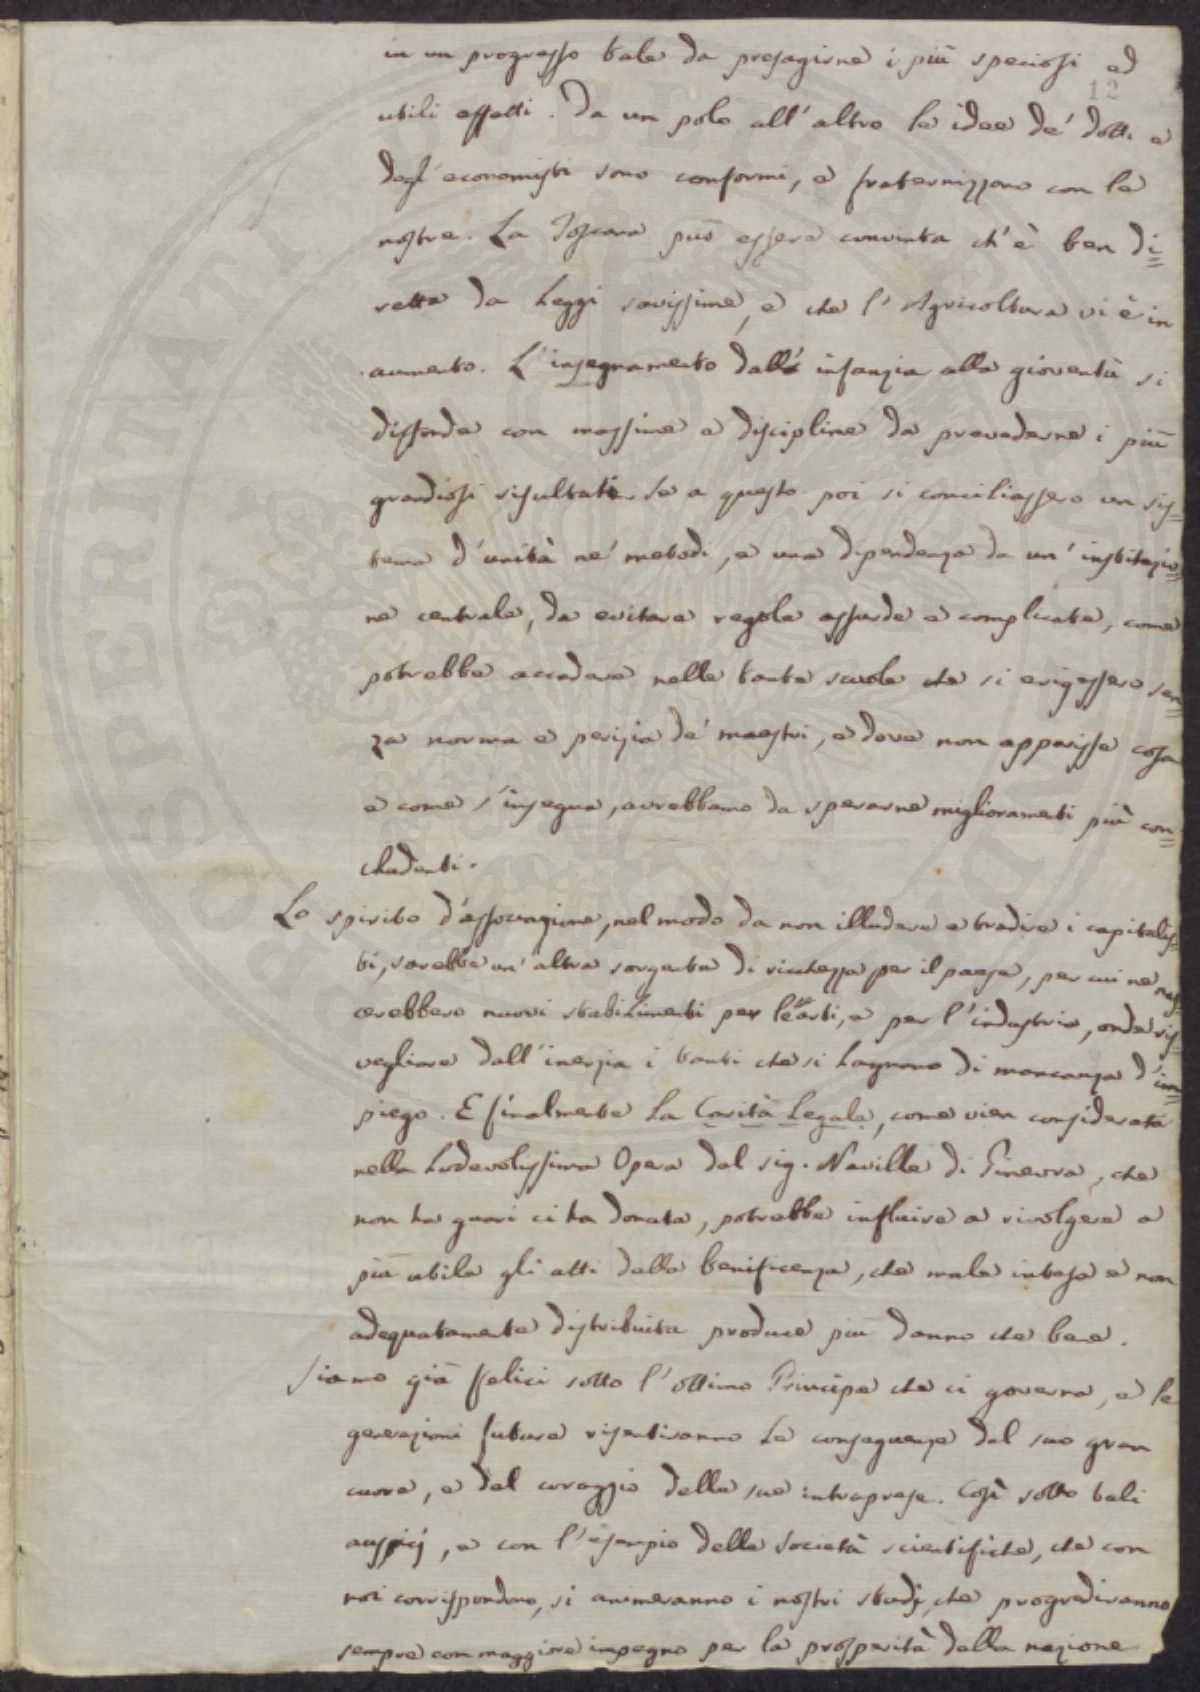 in un progresso tale da presagirne i più speciosi ed
12
utili effetti. Da un polo all'altro le idee de' dotti e
degl'economisti sono conformi, e fraternizzano con le
nostre. La Toscana può essere convinta ch'è ben di=
retta da Leggi savissime, e che l'Agricoltura vi è in
aumento. L'insegnamento dall' infanzia alla gioventù si
diffonde con massime e discipline da prevederne i più
grandiosi risultati. Se a questo poi si conciliassero un sis=
tema d'unità ne' metodi, e una dipendenza da un' instituzio=
ne centrale, da evitare regole assurde e complicate, come
potrebbe accadere nelle tante scuole che si erigessero sen=
za norma e perizia de' maestri, e dove non apparisse cosa
e come s'insegna, avrebbamo da sperarne miglioramenti più con=
chudenti.
Lo spirito d'associazione, nel modo da non illudere e tradire i capitalis=
ti, sarebbe un' altra sorgente di ricchezza per il paese, per cui ne nas=
cerebbero nuovi stabilimenti per le arti, e per l'industria, onde ris=
vegliare dall'inerzia i tanti che si lagnano di mancanza d'im=
piego. E finalmente la Carità Legale, come vien considerata
nella Lodevolissima Opera del sig. Naville di Ginevra, che
non ha guari ci ha donata, potrebbe influire a rivolgere a
più utile gli atti della benificenza, che male intesa e non
adequatamente distribuita produce più danno che bene.
Siamo già felici sotto l'ottimo Principe che ci governa, e le
generazioni future risentiranno le conseguenze del suo gran
cuore, e del coraggio delle sue intraprese. Così sotto tali
auspicj, e con l'esempio delle Società scientifiche, che con
noi corrispondono, si animeranno i nostri studj, che progrediranno
sempre con maggiore impegno per la prosperità della nazione
PROSPERITATI